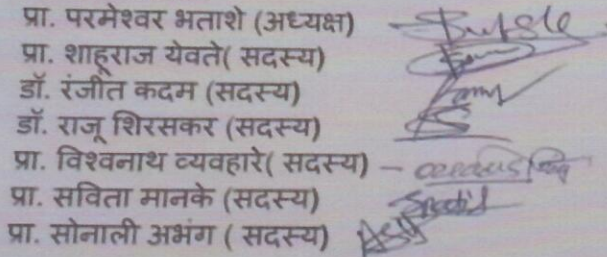 प्रा. परमेश्वर भताशे (अध्यक्ष) -
प्रा. शाहूराज येवते( सदस्य)
डॉ. रंजीत कदम (सदस्य)
डॉ. राजू शिरसकर (सदस्य)
प्रा. विश्वनाथ व्यवहारे( सदस्य) -
प्रा. सविता मानके (सदस्य)
प्रा. सोनाली अभंग ( सदस्य)